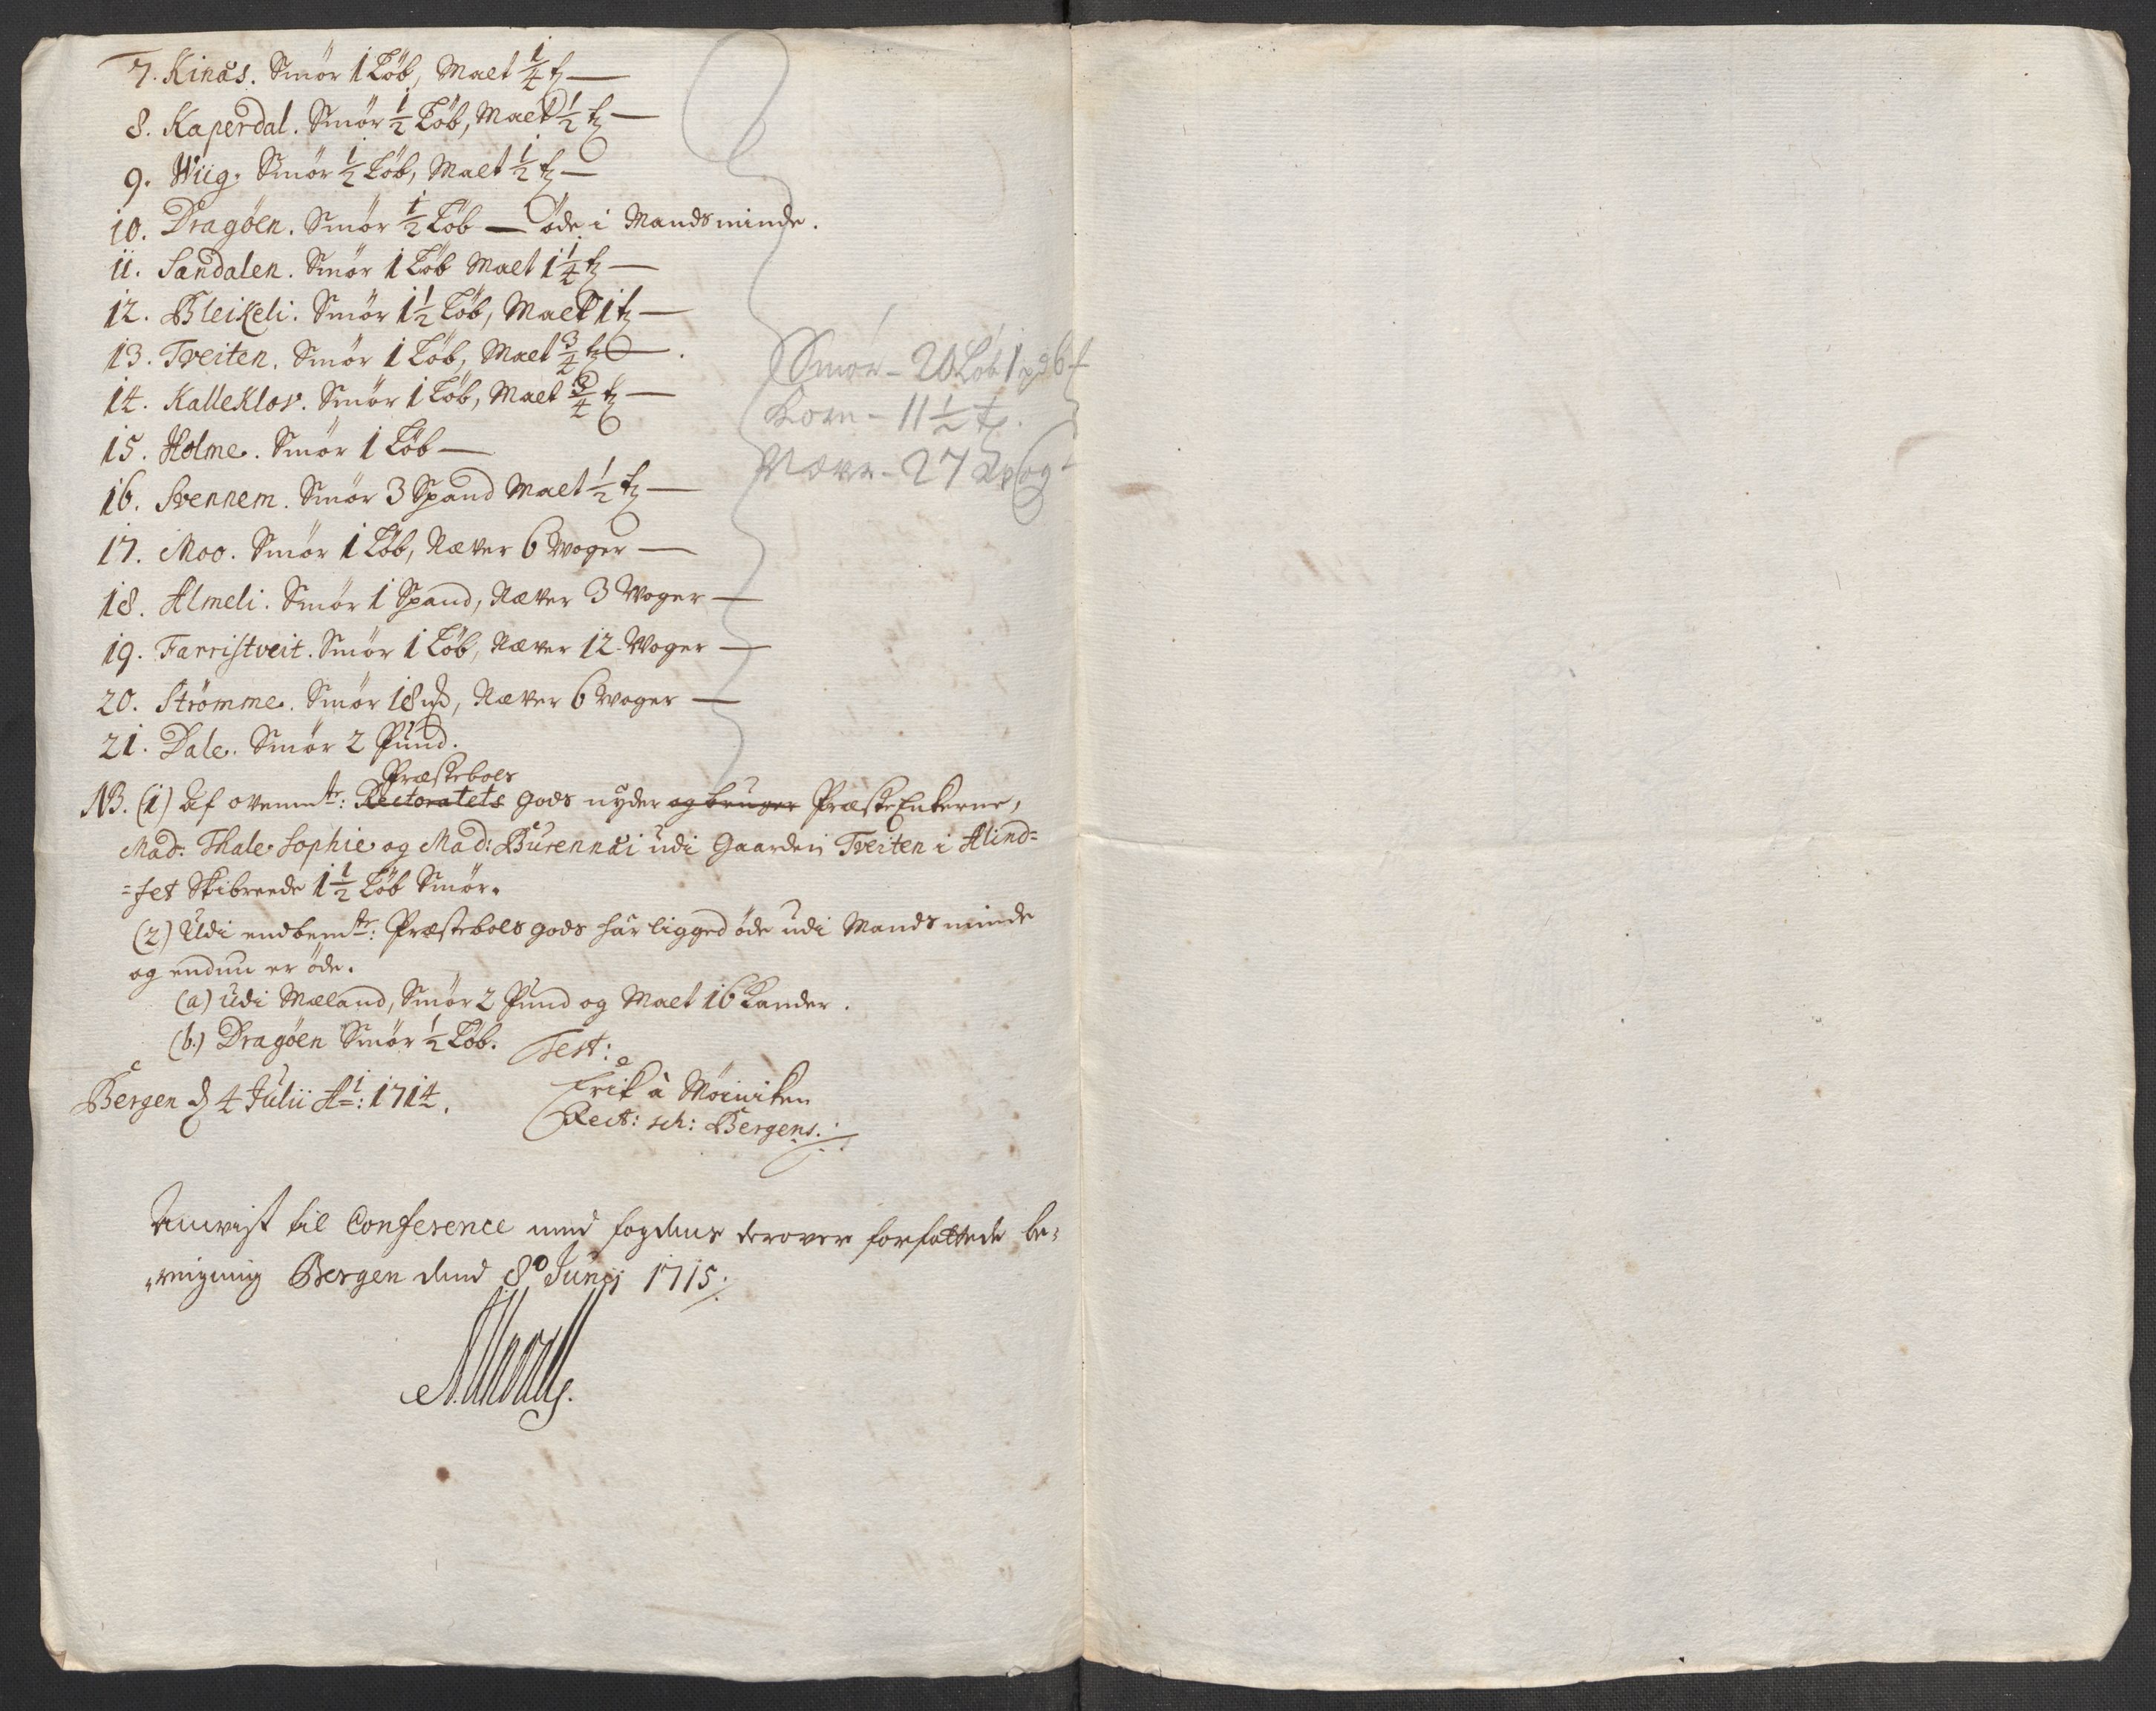 7. Kinås. Smör 1 Löb, Malt 1/4 tʒ —
8. Kaperdal. Smör 1/2 Löb, Malt 1/2 tʒ —
9. Wiig. Smör 1/2 Löb, Malt 1/2 tʒ —
10. Dragöen. Smör 1/2 Löb — öde i Mands minde.
11. Sandalen. Smör 1 Löb Malt 1 1/4 tʒ —
12. Bleikeli. Smör 1 1/2 Löb, Malt 1 tʒ —
13. Tveiten. Smör 1 Löb, Malt 3/4 tʒ —.
14. Kalleklov. Smör 1 Löb, Malt 3/4 tʒ —
15. Holme. Smör 1 Löb —
16. Svennem. Smör 3 Spand Malt 1/2 tʒ —
17. Moo. Smör 1 Löb, Næver 6 Woger —
18. Almeli. Smör 1 Spand, Næver 3 Woger —
19. Farristveit. Smör 1 Löb, Næver 12 Woger —
20. Strömme. Smör 18 m͠k, Næver 6 Woger —
21. Dale. Smör 2 Pund.
Smör - 20 Löb 1 pd 6
Korn - 11 1/2 tʒ.
Næver - 27
Præstebols
NB. (1) Af ovennte: Rectoratets gods nyder og bruger PræsteEnkerne,
Mad: Thale Sophie og Mad: Burennæi udi Gaarden Tveiten i Alind=
=fet Skibreede 1 1/2 Löb Smör.
(2) Udi endbemte: Præstebols gods har ligged öde udi Mands minde
og endnu er öde.
(a) Udi Mæland, Smör 2 Pund og Malt 16 Kander.
(b.) Dragöen Smör 1/2 Löb.
Test:
Bergen d 4 Julii Ai: 1714.
Erik à Möiniken
Rect: sch: Bergens.
Anvist til Conference med fogdens derover forfattede be=
regning Bergen dend 8 Junij 1715.